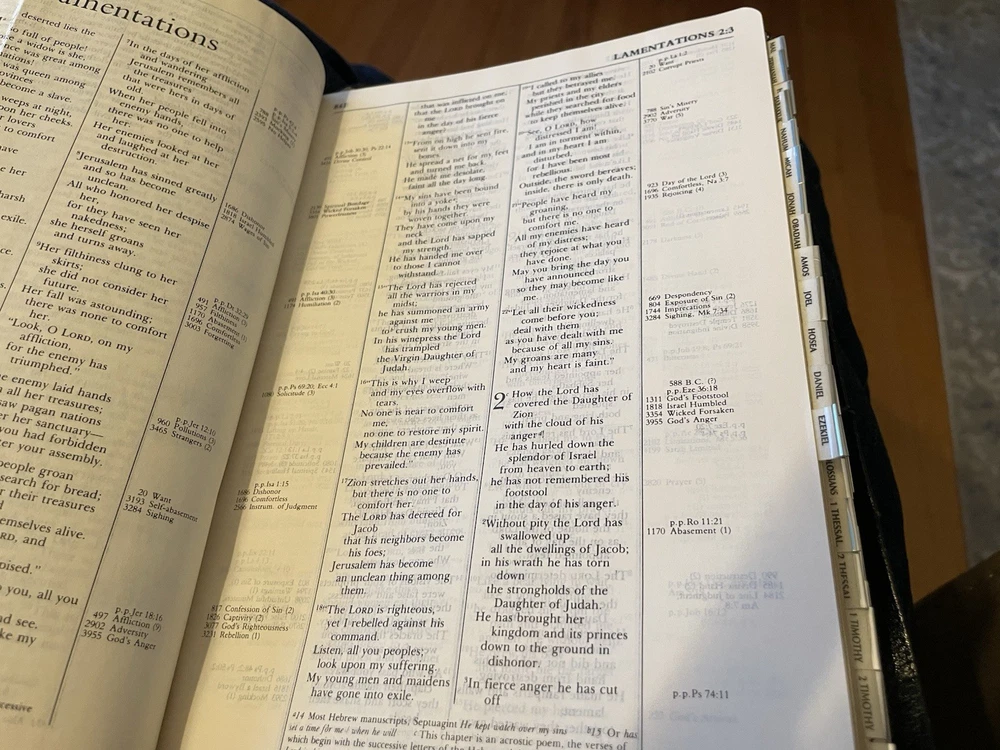 amentations
deserted lies the
so full of people!
a widow is she,
once was great among
nations!
was queen among
provinces
become a slave.
weeps at night,
upon her cheeks.
her lovers
to comfort
have
her
harsh
exile.
the enemy laid hands
all her treasures;
saw pagan nations
her sanctuary—
you had forbidden
enter your assembly.
people groan
search for bread;
their treasures
themselves alive.
LORD, and
despised."
you, all you
and see.
like my
7In the days of her affliction
and wandering
Jerusalem remembers all
the treasures
that were hers in days of
old.
When her people fell into
enemy hands,
there was no one to help
her.
Her enemies looked at her
and laughed at her
destruction.
8Jerusalem has sinned greatly
and so has become
unclean.
All who honored her despise
her,
for they have seen her
nakedness;
she herself groans
and turns away.
9Her filthiness clung to her
skirts;
she did not consider her
future.
Her fall was astounding;
there was none to comfort
her.
"Look, O LORD, on my
affliction,
for the enemy has
triumphed."
1818 Israel Humbled
491
957
1170
1696 Comfortless
3003 Forgetting
p.p.Jer 12:10
960 Pollutions (3)
3465 Strangers (2)
20 Want
3193 Self-abasement
3284 Sighing
p.p.Jer 18:16
497 Affliction (9)
2902 Adversary
3955 God's Anger
LAMENTATIONS 2:3
that was inflicted on me,
that the LORD brought on
me
in the day of his fierce
anger?
13"From on high he sent fire,
sent it down into my
bones.
He spread a net for my feet
and turned me back.
He made me desolate,
faint all the day long.
14"My sins have been bound
into a yoke;
by his hands they were
woven together.
They have come upon my
neck
and the Lord has sapped
my strength.
He has handed me over
to those I cannot
withstand.
15"The Lord has rejected
all the warriors in my
midst;
he has summoned an army
against me
to crush my young men.
In his winepress the Lord
has trampled
the Virgin Daughter of
Judah.
16"This is why I weep
and my eyes overflow with
tears.
No one is near to comfort
me,
no one to restore my spirit.
My children are destitute
because the enemy has
prevailed."
17Zion stretches out her hands,
but there is no one to
comfort her.
The LORD has decreed for
Jacob
that his neighbors become
his foes;
Jerusalem has become
an unclean thing among
them.
18"The LORD is righteous,
yet I rebelled against his
command.
Listen, all you peoples;
look upon my suffering.
My young men and maidens
have gone into exile.
p.p.Isa 1:15
1686 Dishonor
1696 Comfortless
2506 Instrum. of Judgment
p.p.Ps 69:20; Ecc 4:1
Solitude (3)
817 Confession of Sin (2)
1826 Captivity (2)
3077 God's Righteousness
3231 Rebellion (1)
19"I called to my allies
but they betrayed me.
My priests and my elders
perished in the city
while they searched for food
to keep themselves alive.
20"See, O LORD, how
distressed I am!
I am in torment within,
and in my heart I am
disturbed,
for I have been most
rebellious.
Outside, the sword bereaves;
inside, there is only death.
21"People have heard my
groaning,
but there is no one to
comfort me.
All my enemies have heard
of my distress;
they rejoice at what you
have done.
May you bring the day you
have announced
so they may become like
me.
22"Let all their wickedness
come before you;
deal with them
as you have dealt with me
because of all my sins.
My groans are many
and my heart is faint."
2 How the Lord has
covered the Daughter of
Zion
with the cloud of his
anger!
He has hurled down the
splendor of Israel
from heaven to earth;
he has not remembered his
footstool
in the day of his anger.
2Without pity the Lord has
swallowed up
all the dwellings of Jacob;
in his wrath he has torn
down
the strongholds of the
Daughter of Judah.
He has brought her
kingdom and its princes
down to the ground in
dishonor.
3In fierce anger he has cut
off
p.p.La 1:2
20 Want
2102 Corrupt Priests
788 Sin's Misery
2902 Adversity
3770 War (5)
923 Day of the Lord (3)
1696 Comfortless, Na 3:7
1935 Rejoicing (4)
669 Despondency
804 Exposure of Sin (2)
1744 Imprecations
3284 Sighing, Mk 7:34
588 B.C. (?)
p.p.Eze 36:18
1311 God's Footstool
1818 Israel Humbled
3354 Wicked Forsaken
3955 God's Anger
p.p.Ro 11:21
1170 Abasement (1)
p.p.Ps 74:11
a14 Most Hebrew manuscripts; Septuagint He kept watch over my sins b15 Or has
set a time for me / when he will cThis chapter is an acrostic poem, the verses of
which begin with the successive letters of the
NAHUM
MICAH
JONAH OBADIAH
AMOS
JOEL
HOSEA
DANIEL
EZEKIEL
1 THESSAL.
2 THESSAL
1 TIMOTHY
2 TIMOTHY